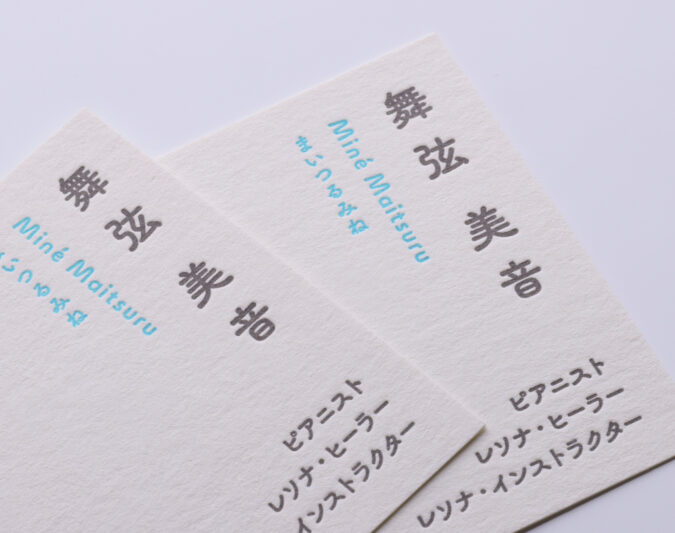 舞弦 美音
Miné Maitsuru
まいつるみね
ピアニスト
レソナ・ヒーラー
レソナ・インストラクター
舞弦 美音
Miné Maitsuru
いつるみね
ピアニスト
レソナ・ヒーラー
インストラクター